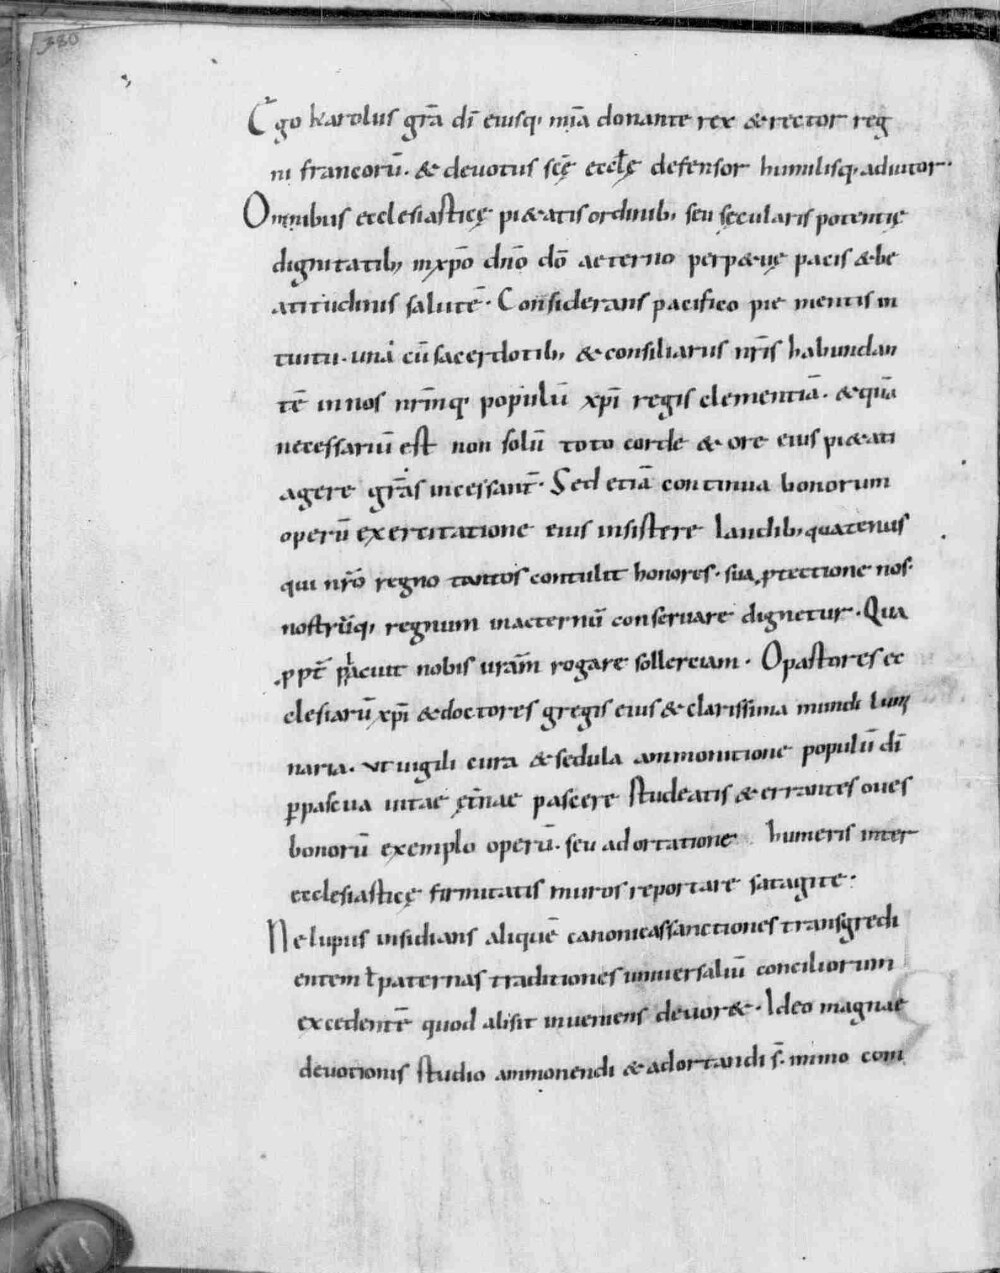 380
Ego karolus grã dĩ eiusq; mĩa donante rex & rector reg
ni francorũ. & deuotus scę̃ eccƚę defensor humilisq; adiutor.
Omnibus ecclesiasticę pi&atis ordinib; seu secularis potentię
dignitatib; inxp̃o dn̄o dō aeterno perp&uę pacis & be
atitudinis salutẽ. Considerans pacifico pie mentis in
tuitu. una cũ sacerdotib; & consiliariis nr̃is habundan
tẽ in nos nr̃mq; populũ xp̃i regis clementiã. & quã
necessariũ est non solũ toto corde & ore eius pi&ati
agere gr̃as incessant̃. Sed etiã continua bonorum
operũ exercitatione eius insistere laudib; quatenus
qui nr̃o regno tantos contulit honores. sua ꝓtectione nos.
nostrũq; regnum inaeternũ conseruare dignetur. Qua
ꝓpt̃ placuit nobis uram̃ rogare sollertiam. O pastores ec
clesiarũ xp̃i & doctores gregis eius & clarissima mundi lumi
naria. ut uigili cura & sedula ammonitione populũ dĩ
ꝑpascua uitae ęt̃nae pascere studeatis & errantes oues
bonorũ exemplo operũ. seu adortatione humeris inter
ecclesiasticę firmitatis muros reportare satagite.
Ne lupus insidians aliquẽ canonicas sanctiones transgredi
entem ƚ paternas traditiones uniuersaliũ conciliorum
excedentẽ quod absit inueniens deuor&. Ideo magnae
deuotionis studio ammonendi & adortandi s̃. immo com